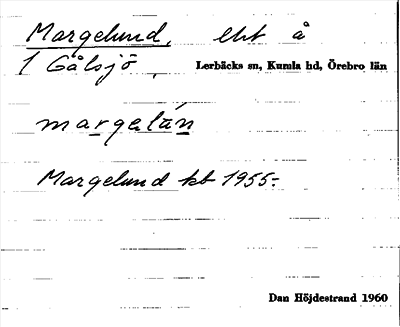 Margelund, ebt å
1 Gålsjö, Lerbäcks sn, Kumla hd, Örebro län
margelán
Margelund kb 1955-
Dan Höjdestrand 1960